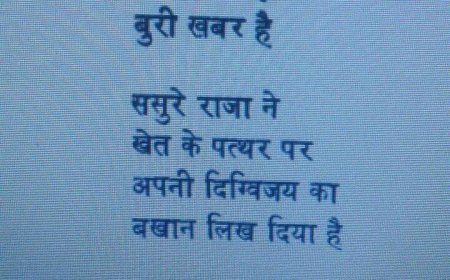 बुरी खबर है
ससुरे राजा ने
खेत के पत्थर पर
अपनी दिग्विजय का
बखान लिख दिया है